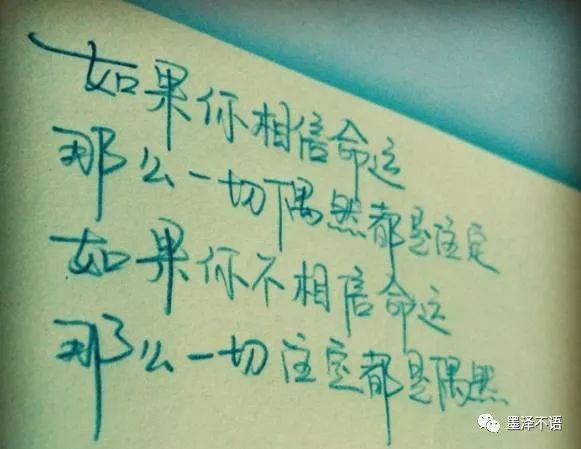 如果你相信命运
那么一切偶然都是注定
如果你不相信命运
那么一切注定都是偶然
墨泽不语